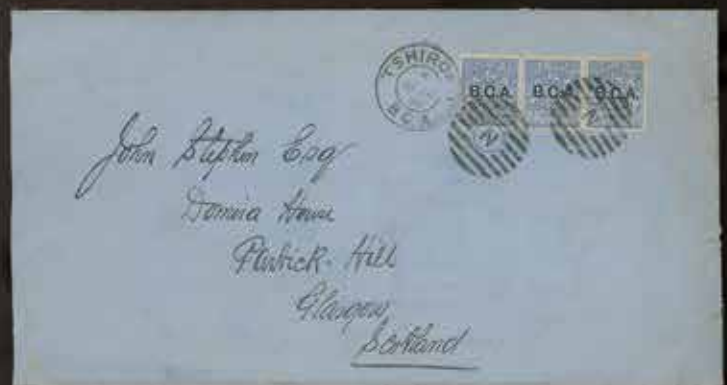 TSHIRO
B.C.A.
B.C.A. B.C.A. B.C.A.
John Stephen Esq
House
Partick Hill
Glasgow
Scotland